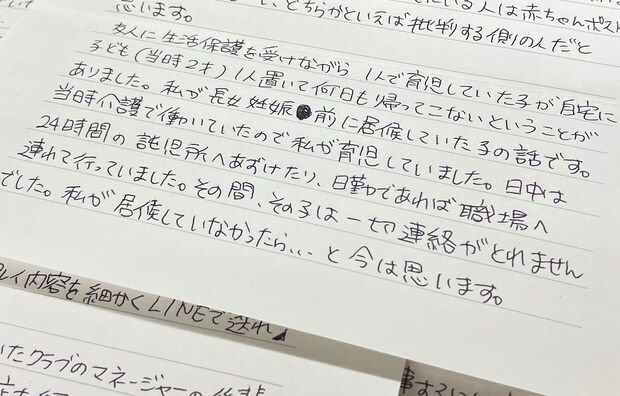 思います。
いる人は赤ちゃんポスト
、どちらかといえば批判する側の人だと
友人に生活保護を受けながら1人で育児していた子が自宅に
子ども(当時2才)1人置いて何日もり帰ってこないということが
ありました。私が長女妊娠●前に居候していた子の話です。
当時介護で働いていたので私が育児していました。日中は
24時間の託児所へあずけたり、日勤であれば職場へ
連れて行っていました。その間、その子は一切連絡がとれません
でした。私が居候していなかったら、、、と今は思います。
レイ内容を細かくLINEで送れ
いたクラブのマネージャーの